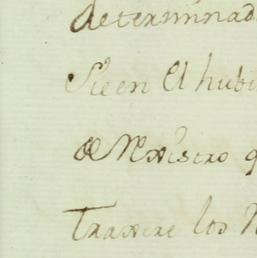 determinad
Si en El hubi
de Ministro q
Traxere los